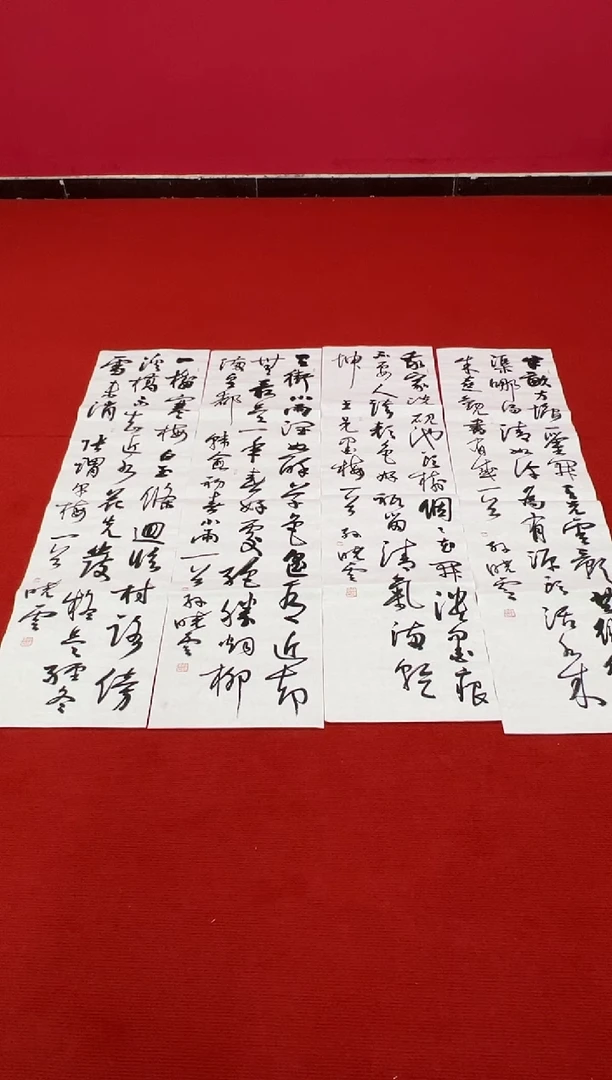 半畝方塘一鑒開天光雲影共徘
渠哪得清如許為有源頭活水來
朱熹觀書有感一首 孫曉雲
我家洗硯池頭樹個〻花開淡墨痕
不要人誇顏色好祇留清氣滿乾
坤 王冕墨梅一首 孫曉雲
天街小雨潤如酥草色遥看近却
無最是一年春好處絕勝烟柳
滿皇都 韓愈初春小雨一首 孫曉雲
一樹寒梅白玉條迴臨村路傍
溪橋不知近水花先發疑是經冬
雪未消 張謂早梅一首 曉雲